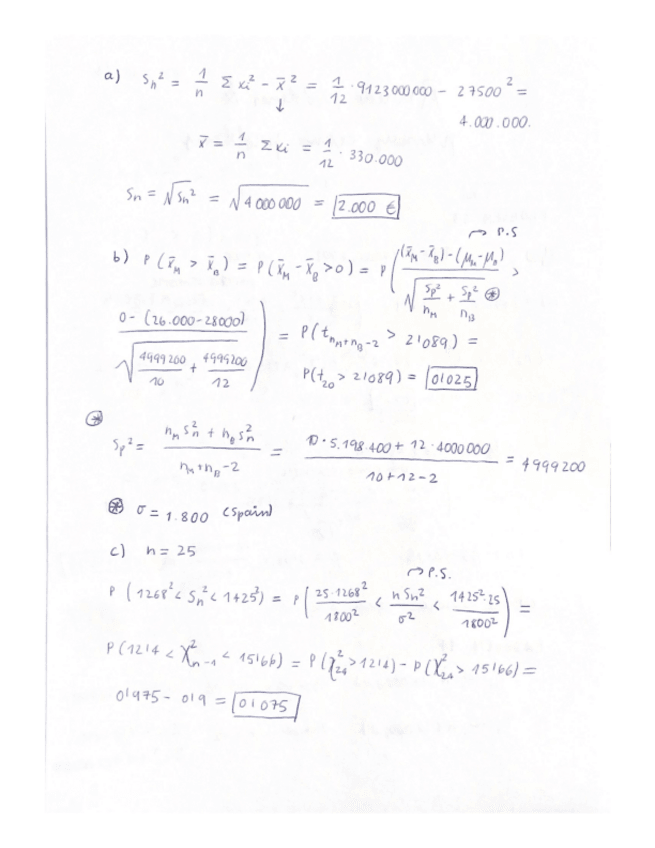 a) Sn² = 1/n Σxi² - x̄² = 1/12 · 9123000000 - 27500² =
4.000.000.
↓
x̄ = 1/n Σxi = 1/12 · 330.000
Sn = √Sn² = √4000000 = 2.000 €
→ P.S
b) P(x̄M > x̄B) = P(x̄M - x̄B > 0) = P( (x̄M - x̄B) - (μM - μB) / √(Sp²/nM + Sp²/nB) ⊛ >
0 - (26.000-28000) / √(4999200/10 + 4999200/12) ) = P(t nM+nB-2 > 2'089) =
P(t20 > 2'089) = 0'025
⊛
Sp² = (nM Sn² + nB Sn²) / (nM+nB-2) = (10·5.198.400 + 12·4000000) / (10+12-2) = 4999200
⊛ σ = 1.800 (Spain)
c) n = 25
→ P.S.
P(1268² < Sn² < 1425²) = P( 25·1268²/1800² < nSn²/σ² < 1425²·25/1800² ) =
P(12'4 < χ²n-1 < 15'66) = P(χ²24 > 12'4) - P(χ²24 > 15'66) =
0'975 - 0'9 = 0'075